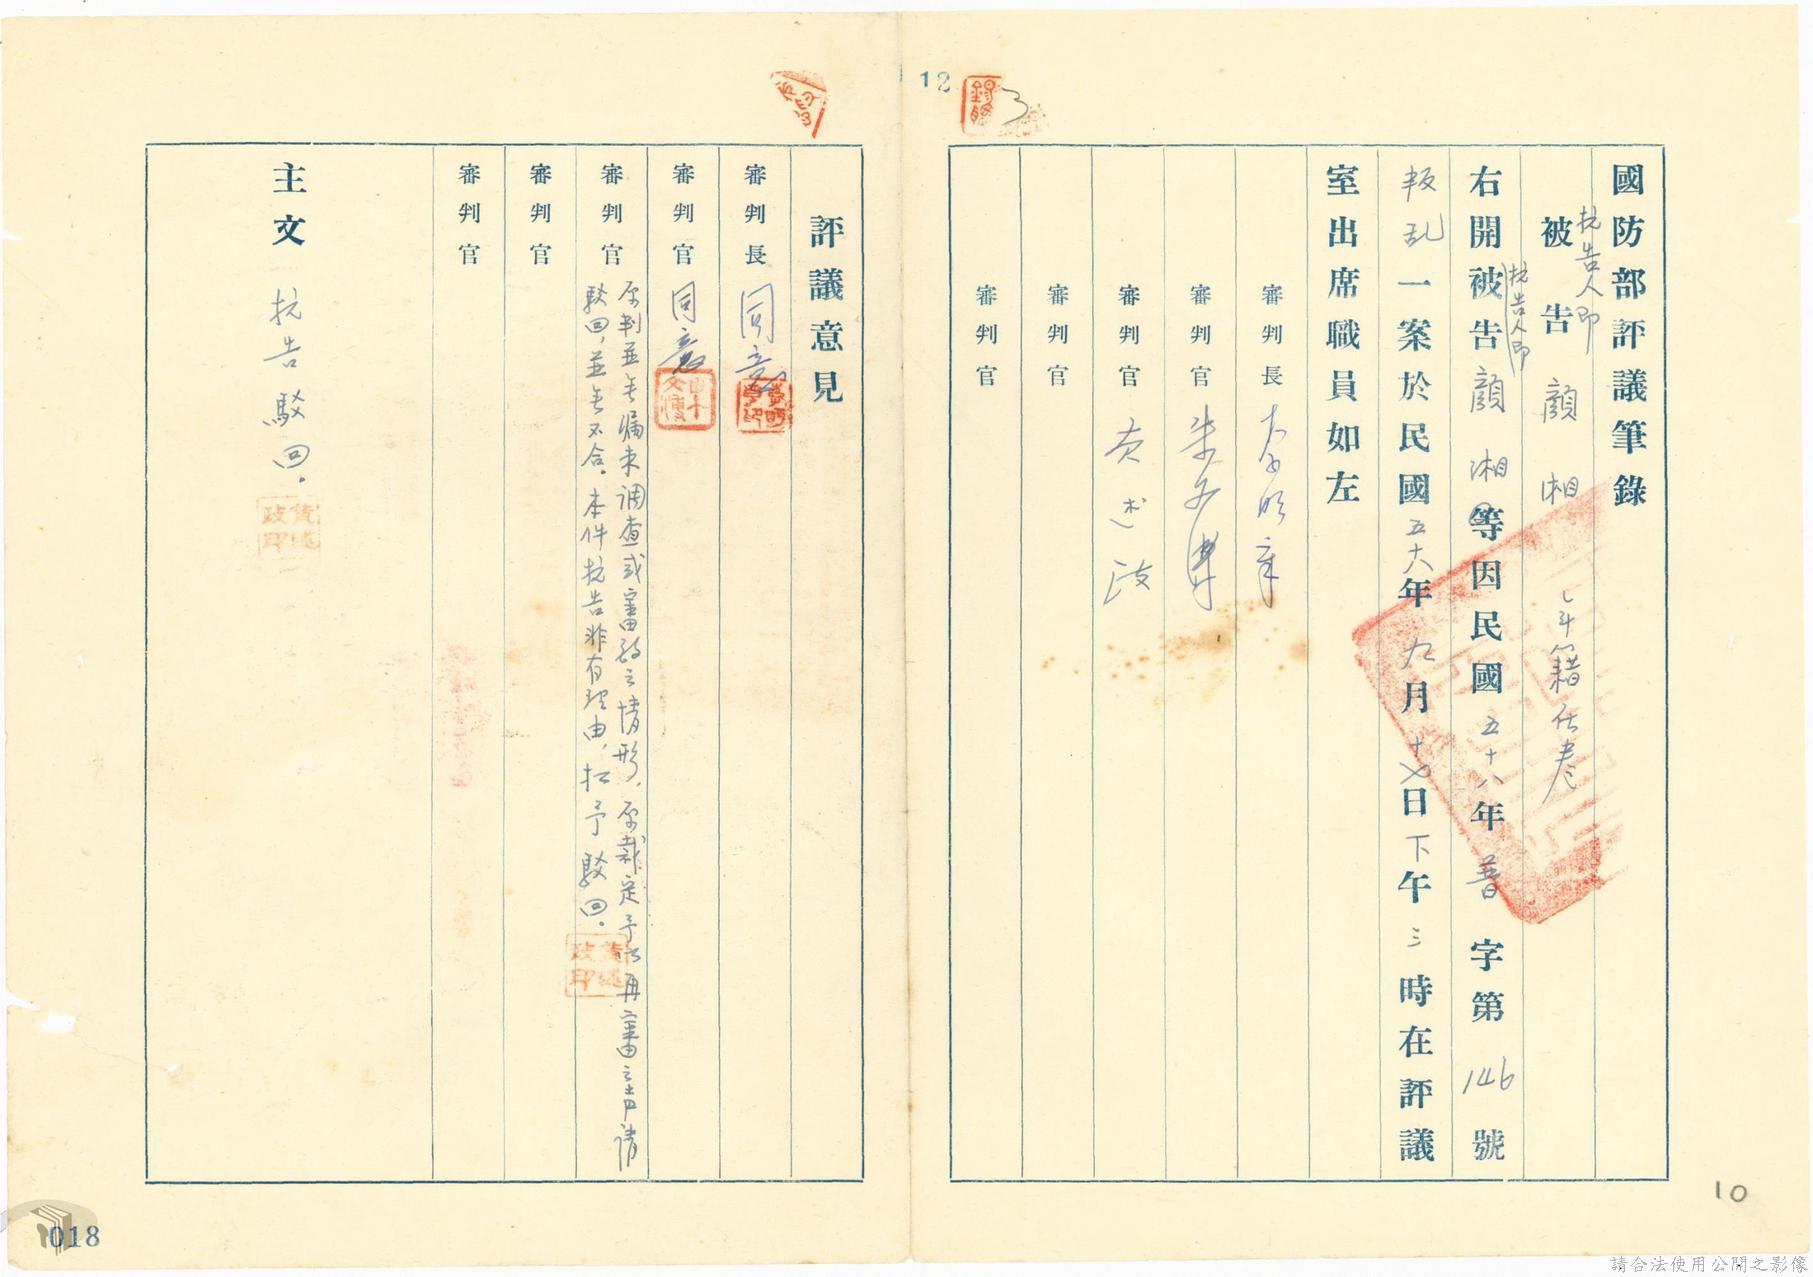 12
國防部評議筆錄
抗告人即
被告 顏湘 年籍在卷
抗告人即
右開被告顏湘等因民國五十八年普字第146號
叛乱一案於民國五十八年九月十七日下午三時在評議
室出席職員如左
審判長
審判官
審判官 黃述政
審判官
審判官
10
評議意見
審判長 同意
審判官 同意
審判官 原判並無漏未調查或審酌之情形,原裁定予以再審之聲請
駁回,並無不合。本件抗告非有理由,擬予駁回。
黃述政印
審判官
審判官
主文 抗告駁回。
黃述政印
018
請合法使用公開之影像